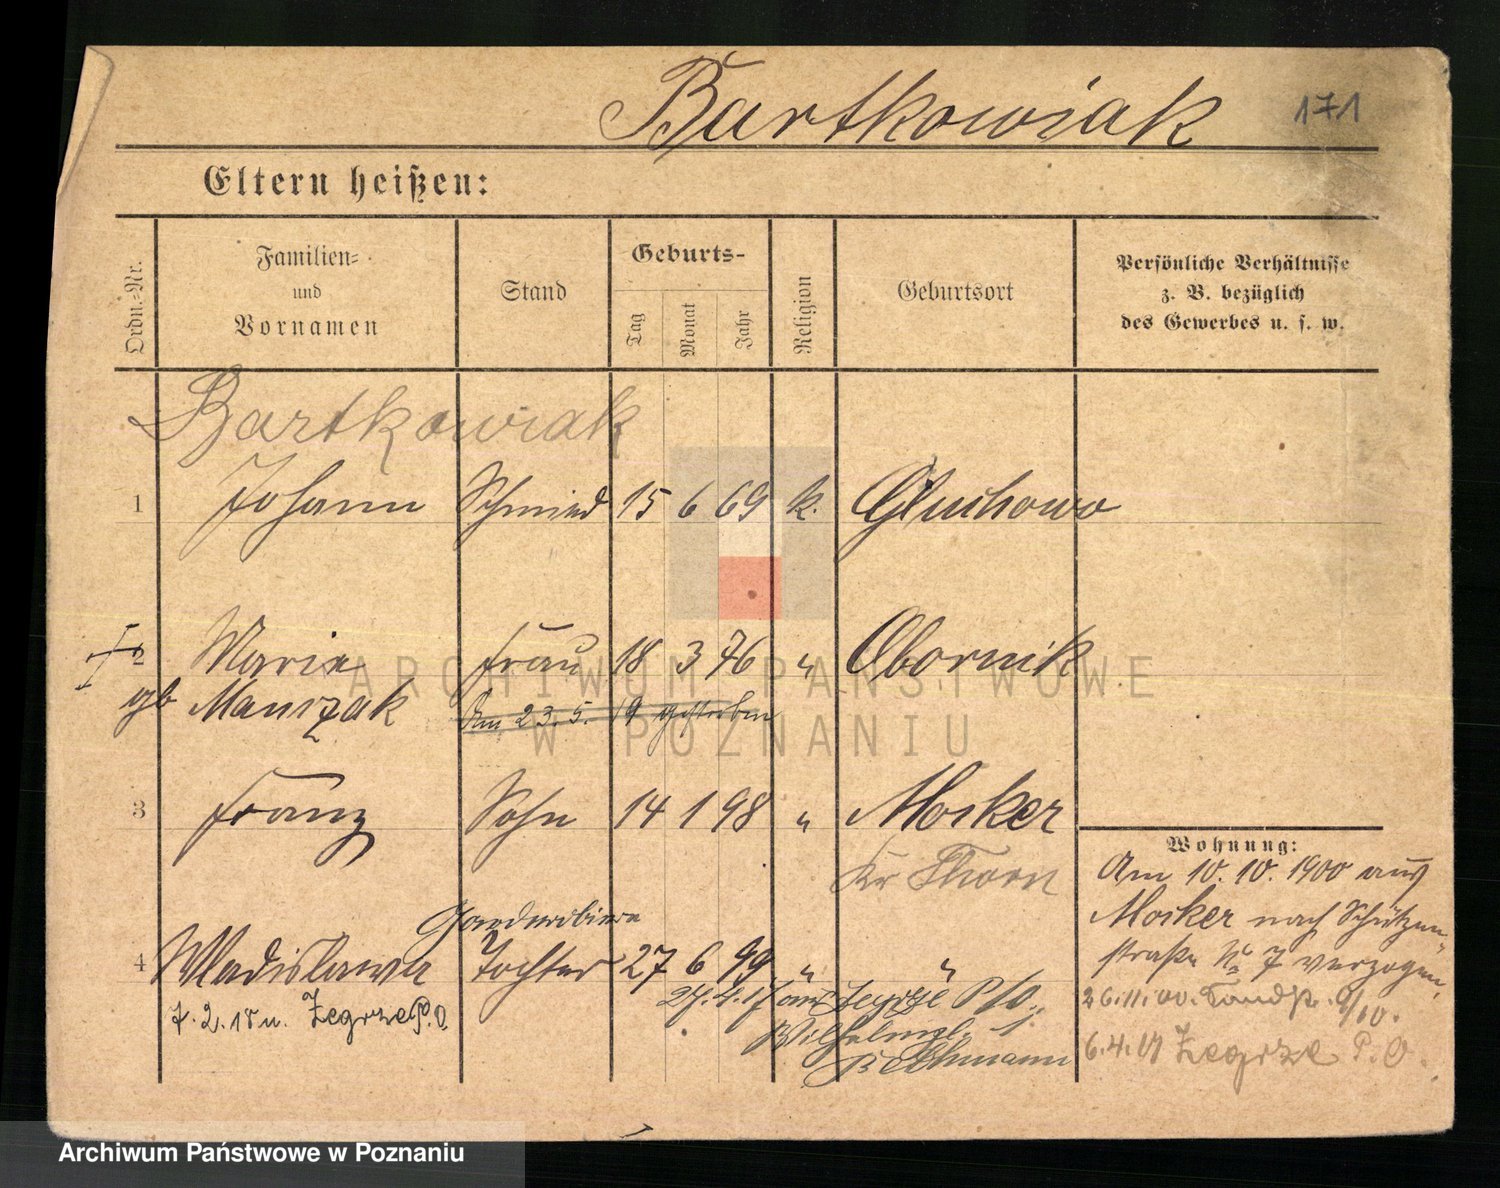 Bartkowiak 171
Eltern heißen:
Ordn.-Nr.
Familien-
und
Vornamen
Stand
Geburts-
Tag
Monat
Jahr
Religion
Geburtsort
Persönliche Verhältnisse
z. B. bezüglich
des Gewerbes u. s. w.
Bartkowiak
1 Johann Schmied 15 6 69 k. Gluchowo
2 Marie Frau 18 3 76 " Obornik
gb Manczak Am 23.5.19 gestorben
3 Franz Sohn 14 1 98 " Mocker
Kr Thorn
Wohnung:
Am 10.10.1900 aus
Mocker nach Schützen-
straße No 7 verzogen.
26.11.00.
6.4.01 Zegrze P.O.
4 Wladislawa Tochter 27 6 99 " "
7.2.18 u. Zegrze P.O.
27.4.17 aus Zegrze P/O.
ARCHIWUM PAŃSTWOWE
W POZNANIU
Archiwum Państwowe w Poznaniu